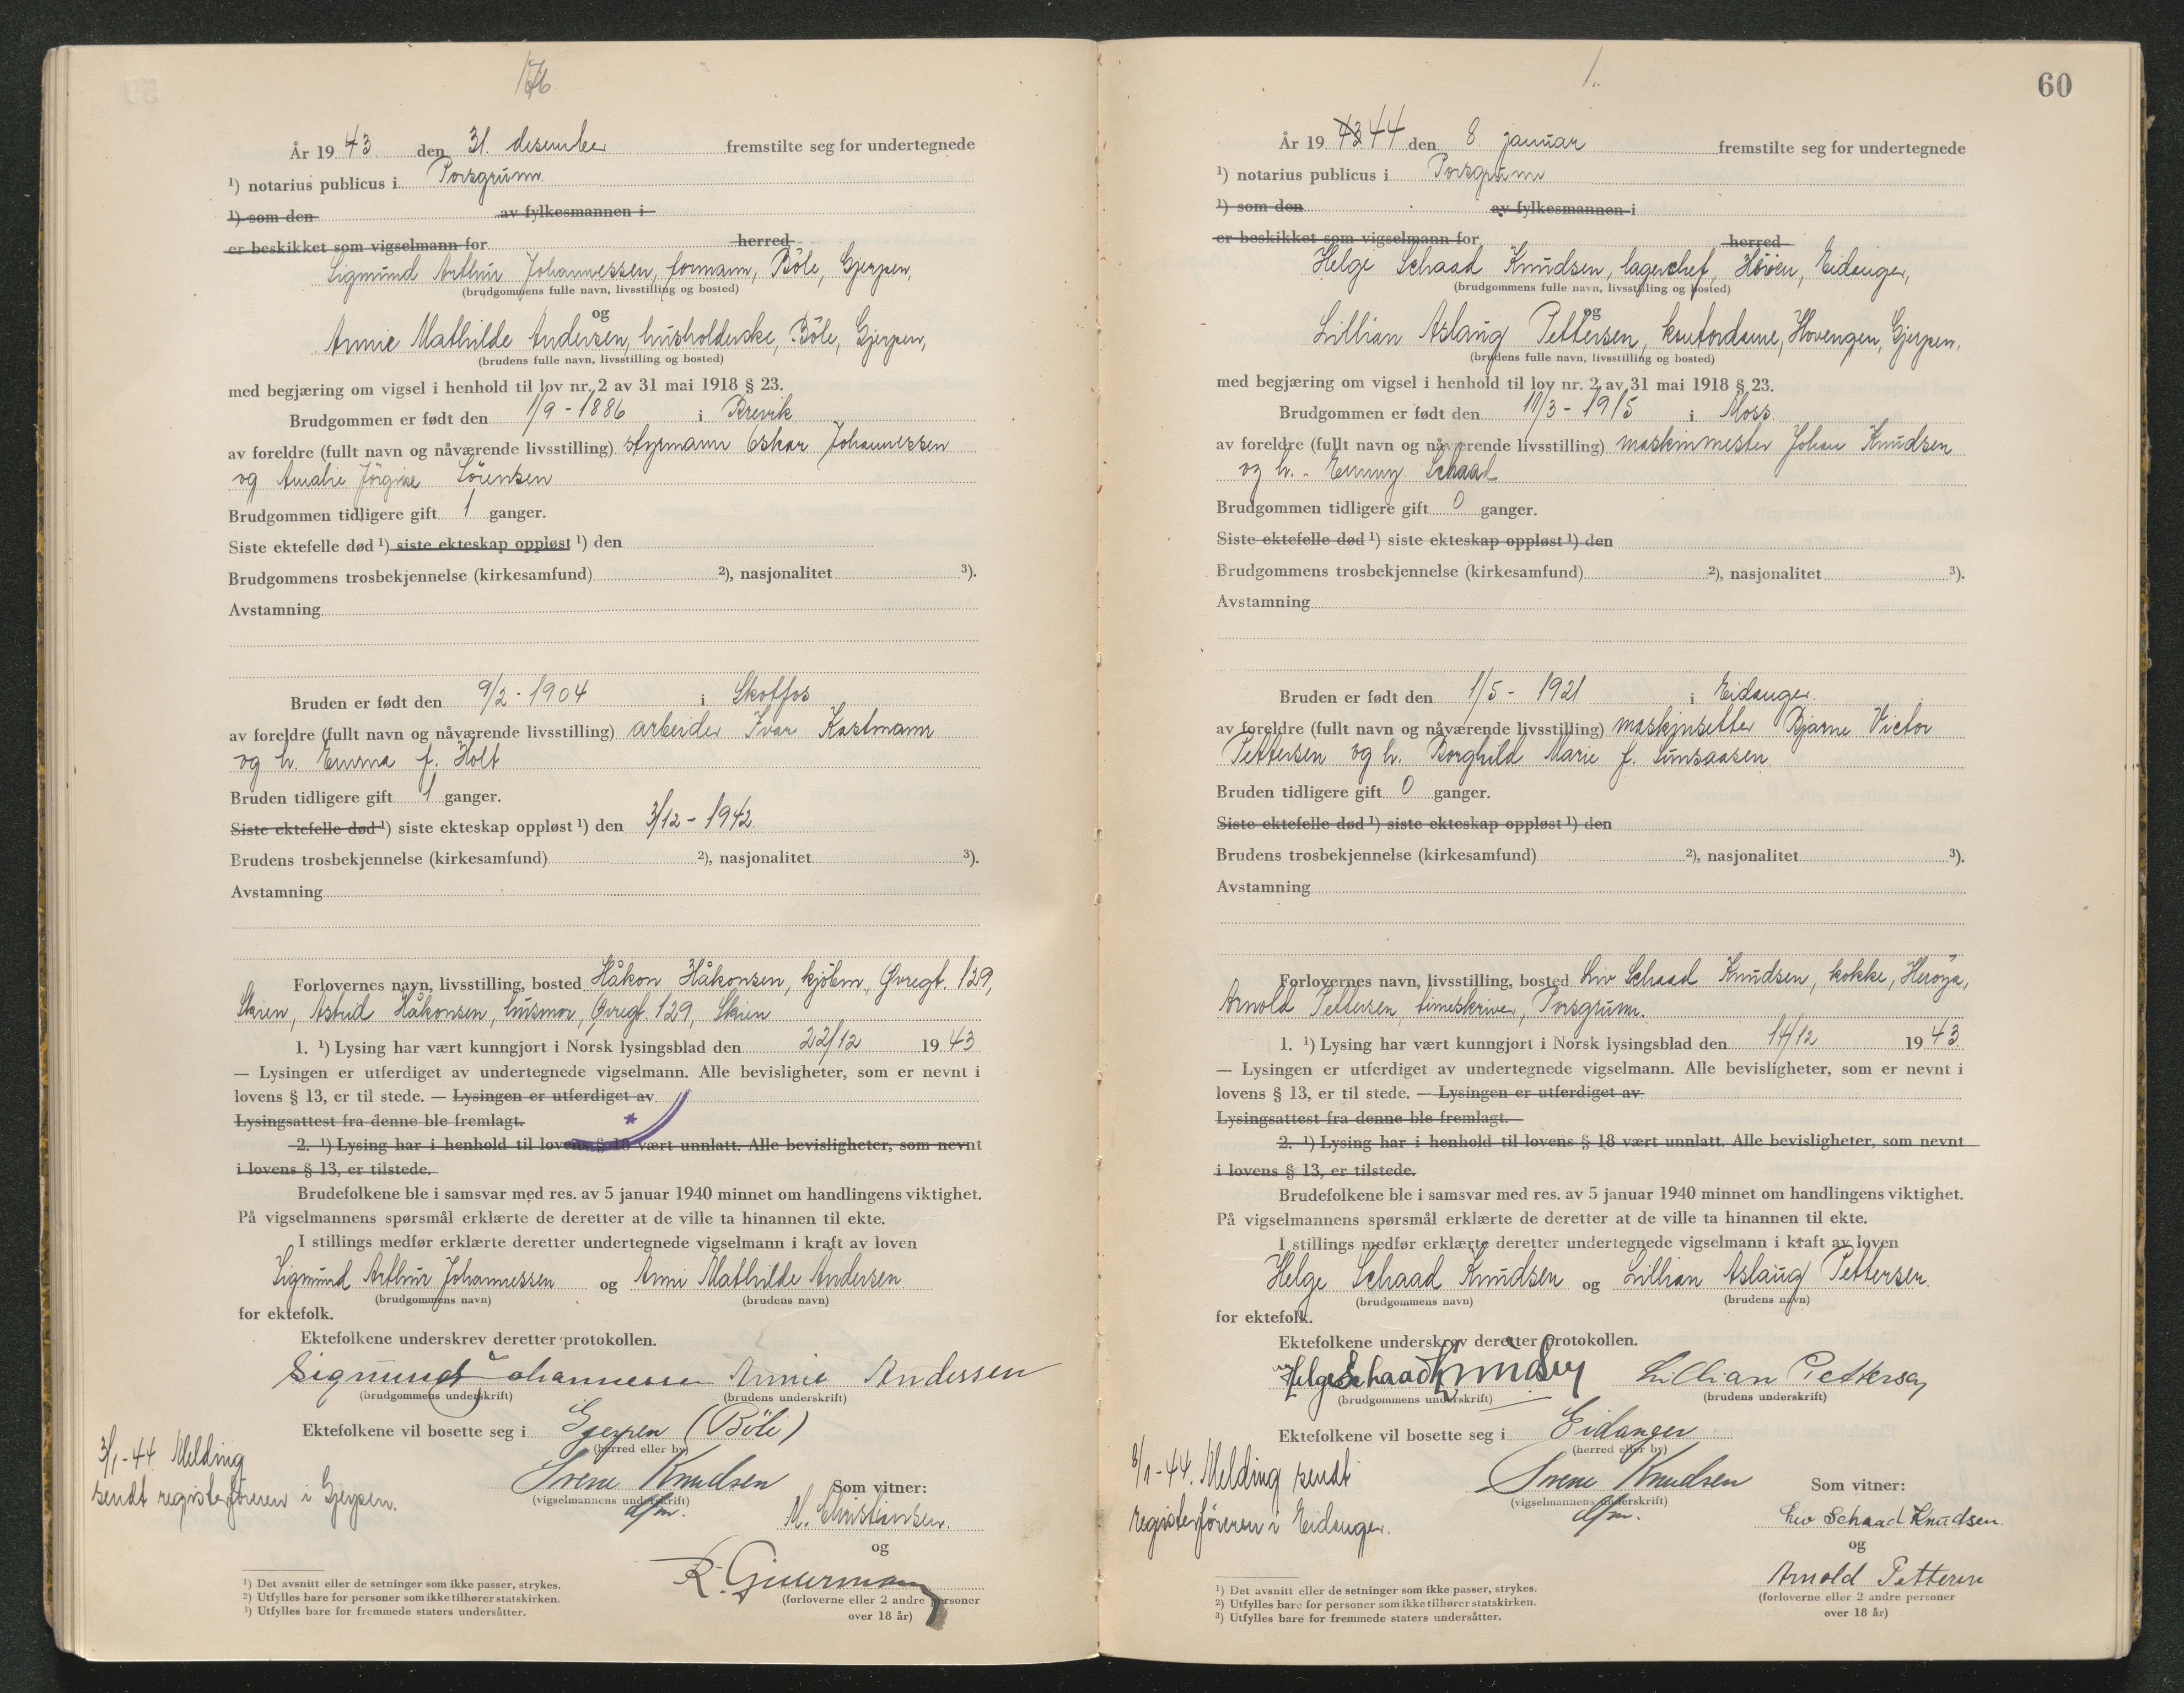 176
År 19 43 den 31. desember fremstilte seg for undertegnede
¹) notarius publicus i Porsgrunn
¹) som den av fylkesmannen i
er beskikket som vigselmann for herred
Sigmund Arthur Johannessen, formann, Böle, Gjerpen,
(brudgommens fulle navn, livsstilling og bosted)
og
Annie Mathilde Andersen, husholderske, Böle, Gjerpen,
(brudens fulle navn, livsstilling og bosted)
med begjæring om vigsel i henhold til lov nr. 2 av 31 mai 1918 § 23.
Brudgommen er født den 1/9 - 1886 i Brevik
av foreldre (fullt navn og nåværende livsstilling) styrmann Oskar Johannessen
og Amalie Jörgine Sörensen
Brudgommen tidligere gift 1 ganger.
Siste ektefelle død ¹) siste ekteskap oppløst ¹) den
Brudgommens trosbekjennelse (kirkesamfund) ²), nasjonalitet ³).
Avstamning
Bruden er født den 9/2 - 1904 i Skotfos
av foreldre (fullt navn og nåværende livsstilling) arbeider Ivar Kastmann
og h. Emma f. Holt
Bruden tidligere gift 1 ganger.
Siste ektefelle død ¹) siste ekteskap oppløst ¹) den 3/12 - 1942.
Brudens trosbekjennelse (kirkesamfund) ²), nasjonalitet ³).
Avstamning
Forlovernes navn, livsstilling, bosted Håkon Håkonsen, kjöbm., Øvregt. 129,
Skien, Astrid Håkonsen, husmor, Øvregt. 129, Skien
1. ¹) Lysing har vært kunngjort i Norsk lysingsblad den 22/12 19 43
— Lysingen er utferdiget av undertegnede vigselmann. Alle bevisligheter, som er nevnt i
lovens § 13, er til stede. — Lysingen er utferdiget av
Lysingsattest fra denne ble fremlagt.
2. ¹) Lysing har i henhold til lovens § 18 vært unnlatt. Alle bevisligheter, som nevnt
i lovens § 13, er tilstede.
Brudefolkene ble i samsvar med res. av 5 januar 1940 minnet om handlingens viktighet.
På vigselmannens spørsmål erklærte de deretter at de ville ta hinannen til ekte.
I stillings medfør erklærte deretter undertegnede vigselmann i kraft av loven
Sigmund Arthur Johannessen og Anni Mathilde Andersen
(brudgommens navn) (brudens navn)
for ektefolk.
Ektefolkene underskrev deretter protokollen.
Sigmund Johannessen Annie Andersen
(brudgommens underskrift) (brudens underskrift)
Ektefolkene vil bosette seg i Gjerpen (Böle)
(herred eller by)
3/1-44 Melding
sendt registerföreren i Gjerpen.
Svene Knudsen Som vitner:
(vigselmannens underskrift)
dfm. M. Christiansen.
og
R. Gjuerman
(forloverne eller 2 andre personer
over 18 år)
¹) Det avsnitt eller de setninger som ikke passer, strykes.
²) Utfylles bare for personer som ikke tilhører statskirken.
³) Utfylles bare for fremmede staters undersåtter.
1.
60
År 19 43 44 den 8. januar fremstilte seg for undertegnede
¹) notarius publicus i Porsgrunn
¹) som den av fylkesmannen i
er beskikket som vigselmann for herred
Helge Schaad Knudsen, lagerchef, Heröen, Eidanger,
(brudgommens fulle navn, livsstilling og bosted)
og
Lillian Aslaug Pettersen, kontordame, Hovengen, Gjerpen,
(brudens fulle navn, livsstilling og bosted)
med begjæring om vigsel i henhold til lov nr. 2 av 31 mai 1918 § 23.
Brudgommen er født den 11/3 - 1915 i Moss
av foreldre (fullt navn og nåværende livsstilling) maskinmester Johan Knudsen
og h. - Emmy Schaad
Brudgommen tidligere gift 0 ganger.
Siste ektefelle død ¹) siste ekteskap oppløst ¹) den
Brudgommens trosbekjennelse (kirkesamfund) ²), nasjonalitet ³).
Avstamning
Bruden er født den 1/5 - 1921 i Eidanger
av foreldre (fullt navn og nåværende livsstilling) maskinsetter Bjarne Victor
Pettersen og h. Borghild Marie f. Sunsaasen
Bruden tidligere gift 0 ganger.
Siste ektefelle død ¹) siste ekteskap oppløst ¹) den
Brudens trosbekjennelse (kirkesamfund) ²), nasjonalitet ³).
Avstamning
Forlovernes navn, livsstilling, bosted Liv Schaad Knudsen, kokke, Heröya,
Arnold Pettersen, timeskriver, Porsgrunn.
1. ¹) Lysing har vært kunngjort i Norsk lysingsblad den 14/12 19 43
— Lysingen er utferdiget av undertegnede vigselmann. Alle bevisligheter, som er nevnt i
lovens § 13, er til stede. — Lysingen er utferdiget av
Lysingsattest fra denne ble fremlagt.
2. ¹) Lysing har i henhold til lovens § 18 vært unnlatt. Alle bevisligheter, som nevnt
i lovens § 13, er tilstede.
Brudefolkene ble i samsvar med res. av 5 januar 1940 minnet om handlingens viktighet.
På vigselmannens spørsmål erklærte de deretter at de ville ta hinannen til ekte.
I stillings medfør erklærte deretter undertegnede vigselmann i kraft av loven
Helge Schaad Knudsen og Lillian Aslaug Pettersen
(brudgommens navn) (brudens navn)
for ektefolk.
Ektefolkene underskrev deretter protokollen.
Helge Schaad Knudsen Lillian Pettersen
(brudgommens underskrift) (brudens underskrift)
Ektefolkene vil bosette seg i Eidanger
(herred eller by)
8/1-44. Melding sendt
registerföreren i Eidanger.
Svene Knudsen Som vitner:
(vigselmannens underskrift)
dfm. Liv Schaad Knudsen
og
Arnold Pettersen
(forloverne eller 2 andre personer
over 18 år)
¹) Det avsnitt eller de setninger som ikke passer, strykes.
²) Utfylles bare for personer som ikke tilhører statskirken.
³) Utfylles bare for fremmede staters undersåtter.